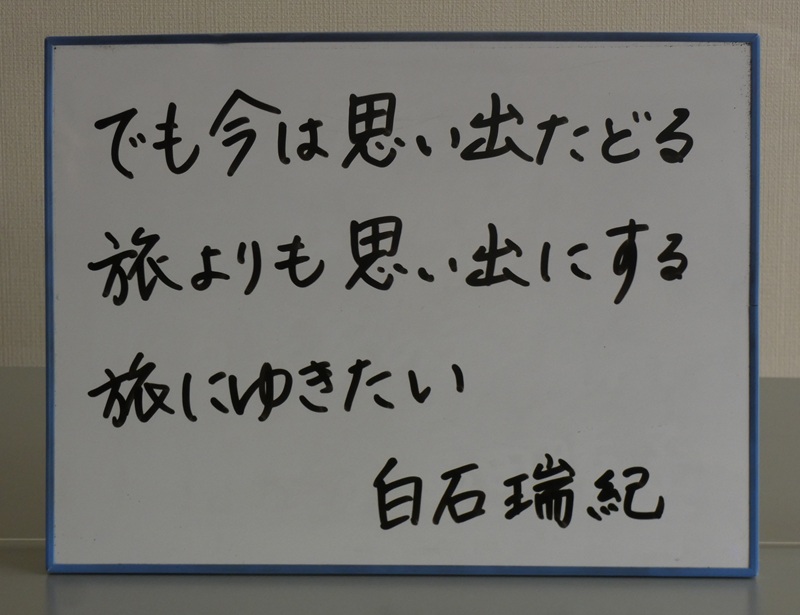 でも今は思い出たどる
旅よりも思い出にする
旅にゆきたい
白石瑞紀